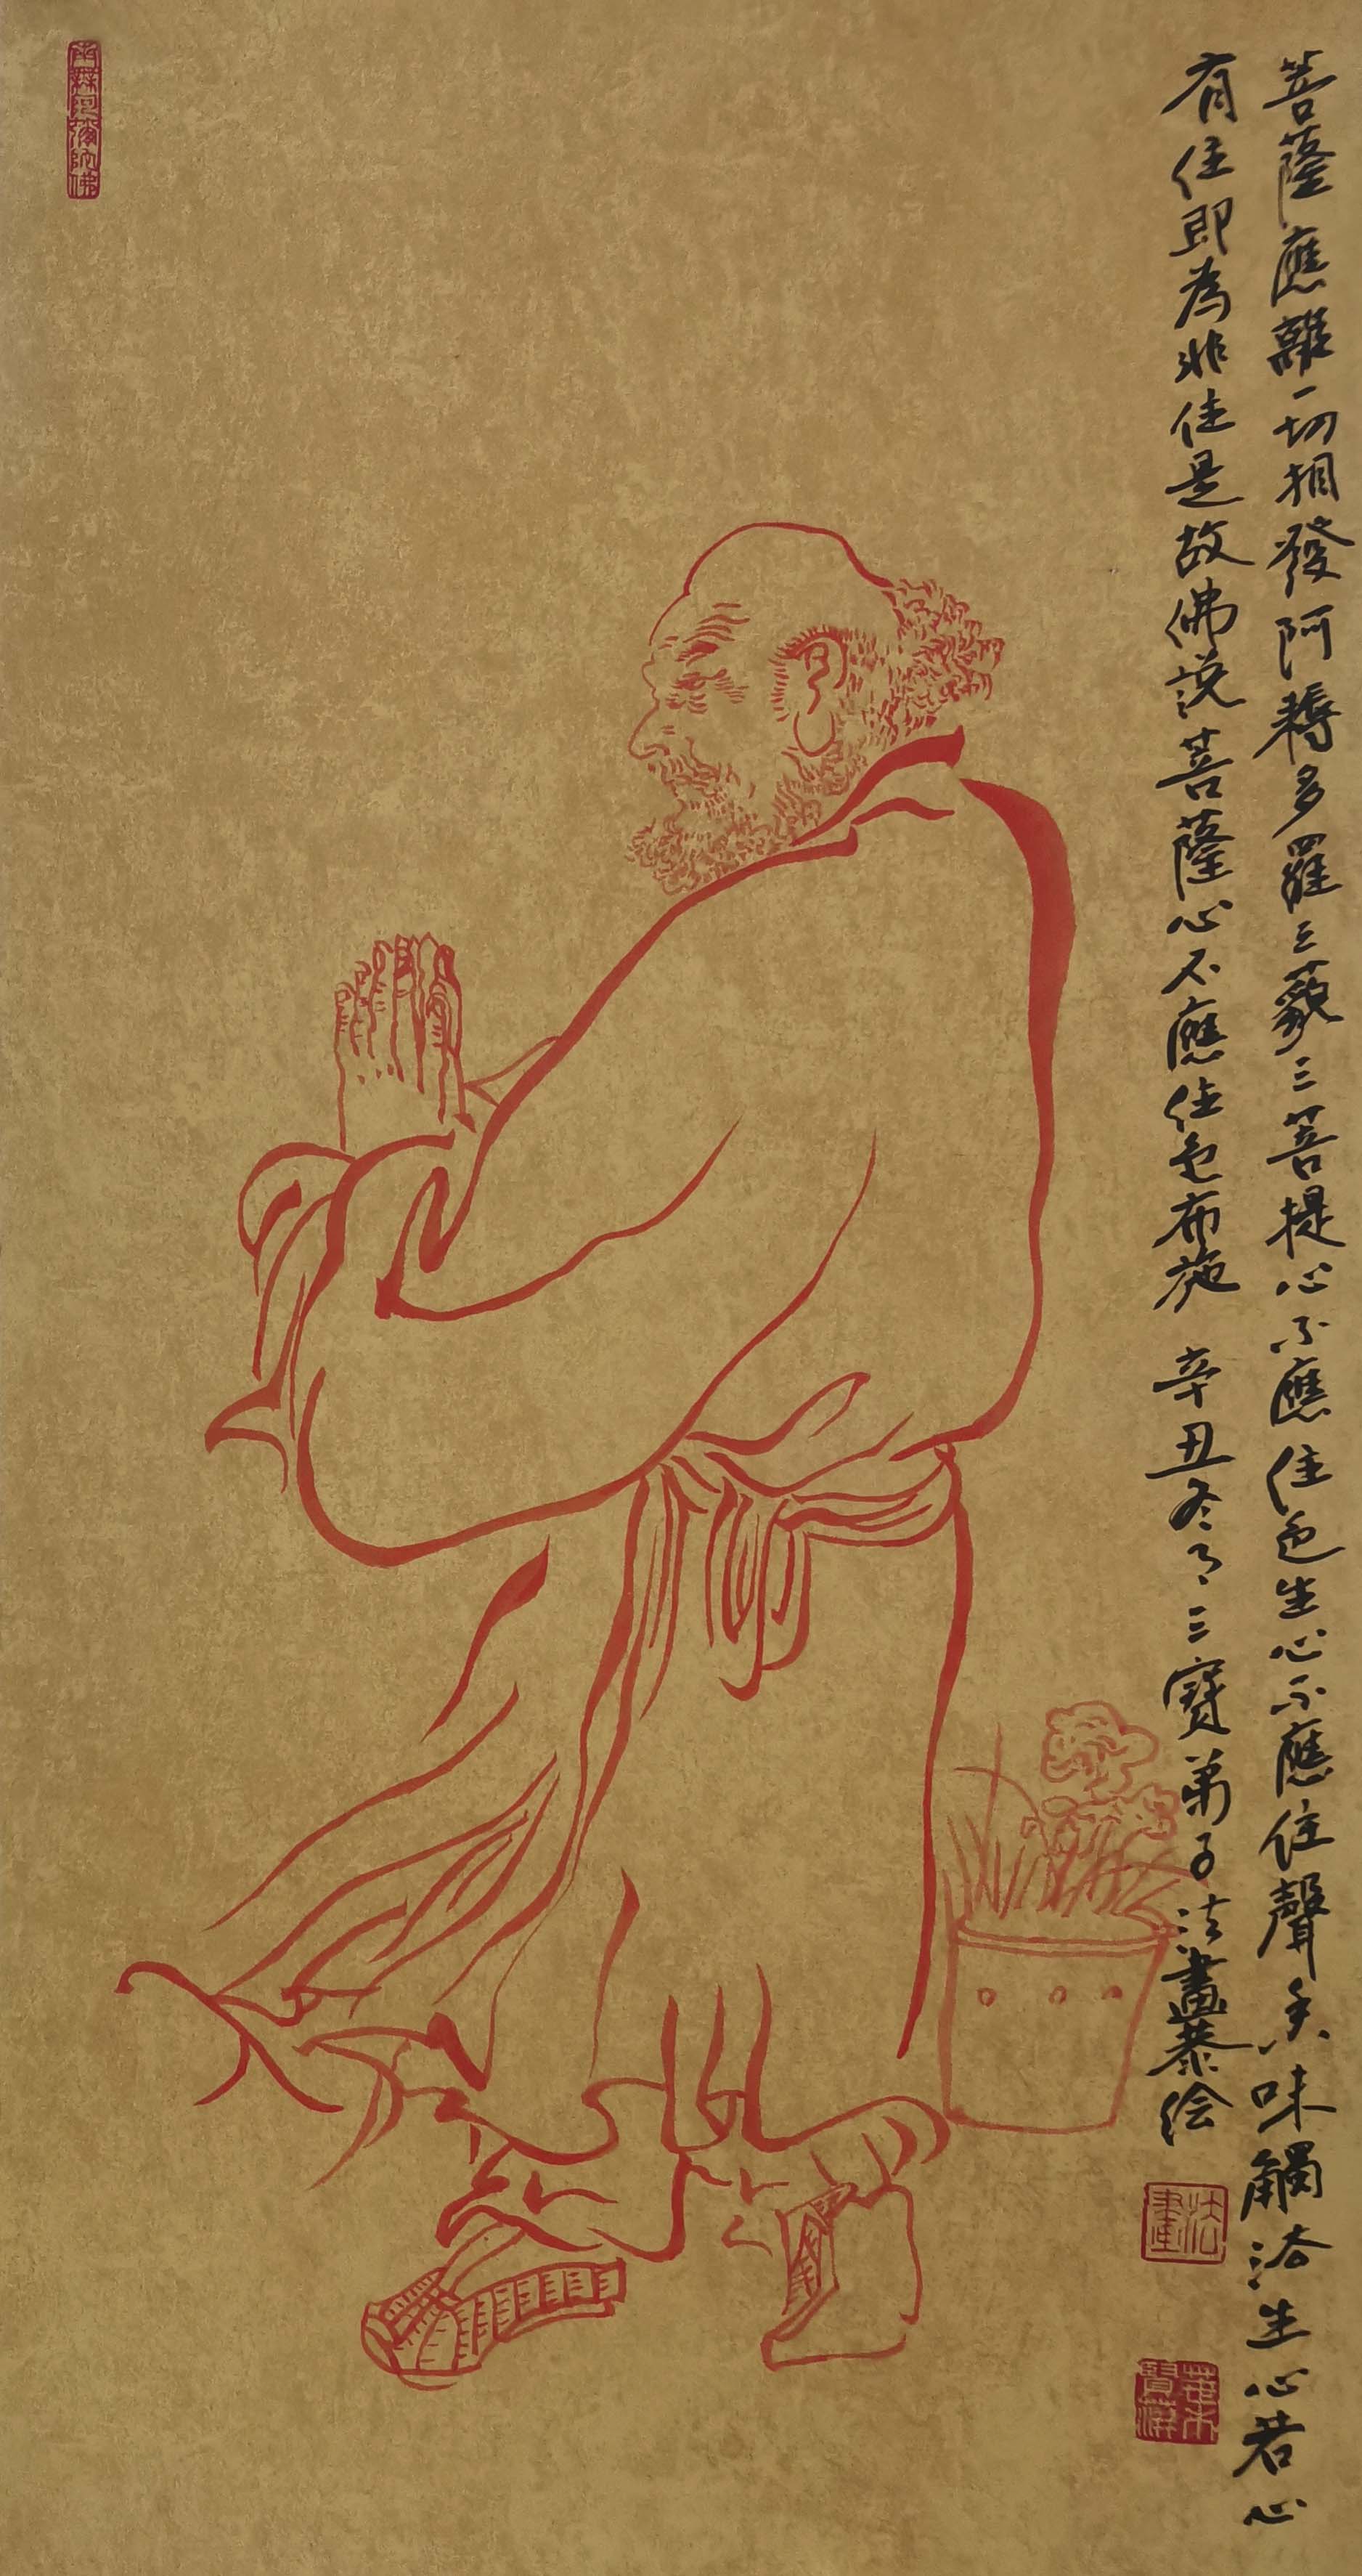 菩薩應離一切相發阿耨多羅三藐三菩提心不應住色生心不應住聲香味觸法生心若心
有住即為非住是故佛說菩薩心不應住色布施 辛丑冬月三寶弟子法畫恭绘
南無阿彌陀佛
法畫